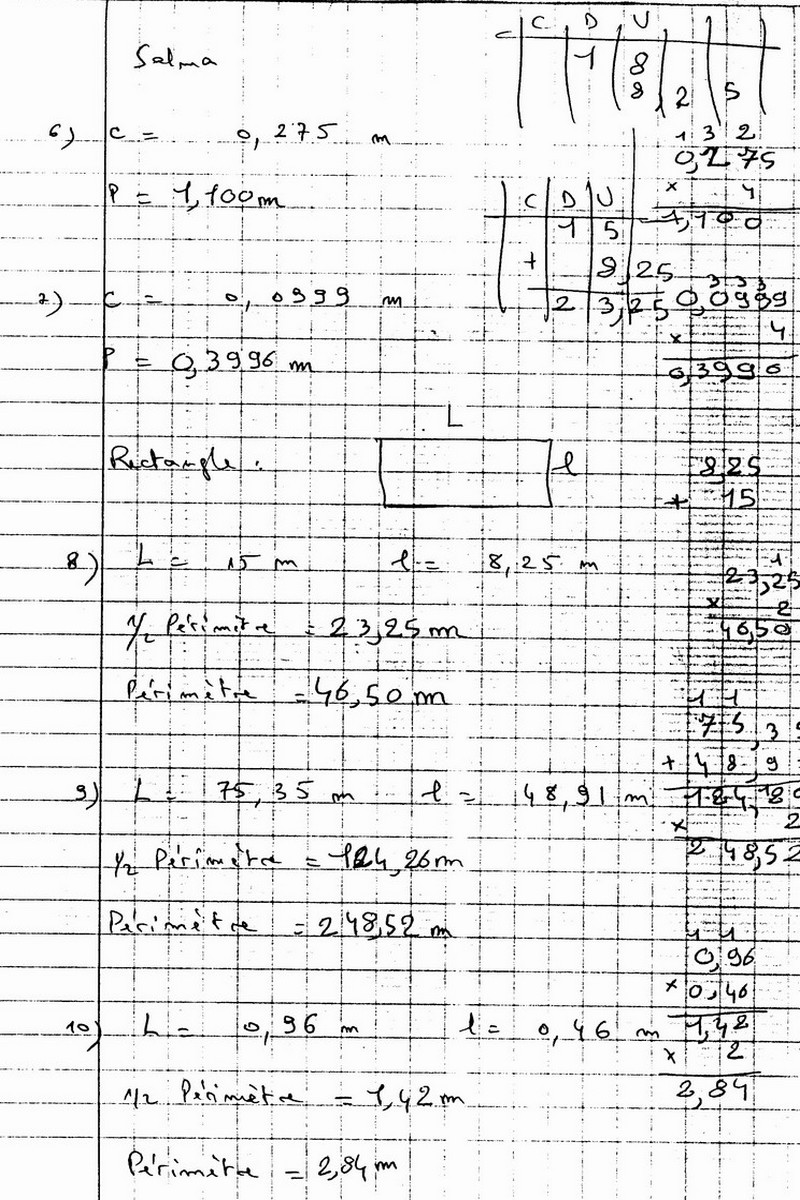 Salma
C D U
1 8
8,25
6) c = 0,275 m
P = 1,100 m
1 3 2
0,275
x 4
1,100
C D U
1 5
+ 8,25
2 3,25
7) c = 0,0999 m
P = 0,3996 m
3 3 3
0,0999
x 4
0,3996
L
Rectangle : l
8,25
+ 15
8) L = 15 m l = 8,25 m
1
23,25
x 2
46,50
1/2 Périmètre = 23,25 m
Périmètre = 46,50 m
1 1
75,35
+ 48,9
9) L = 75,35 m l = 48,91 m
x 2
248,52
1/2 Périmètre = 124,26 m
Périmètre = 248,52 m
1 1
0,96
x 0,46
1,42
x 2
2,84
10) L = 0,96 m l = 0,46 m
1/2 Périmètre = 1,42 m
Périmètre = 2,84 m